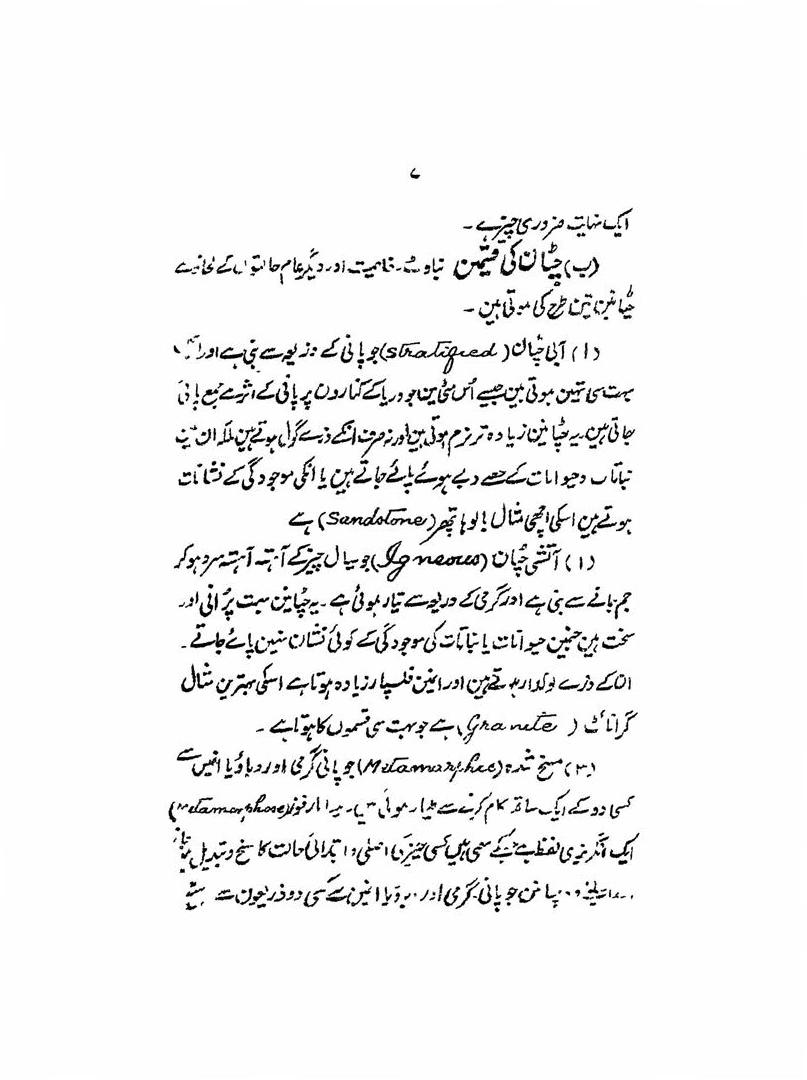 ۷
ایک نہایت ضروری چیز ہے ۔
(ب) چٹان کی قسمین بناوٹ ۔ خاصیت اور دیگر عام حالتوں کے لحاظ سے
چٹانین تین طرح کی ہوتی ہین ۔
(۱) آبی چٹان (Stratified) جو پانی کے ذریعہ سے بنی ہے اور
بہت سی تہین ہوتی ہین جیسے اُس مٹی مین جو دریا کے کنارون پر پانی کے اثر سے جمع پائی
جاتی ہین ۔ یہ چٹانین زیادہ تر نرم ہوتی ہین اور نہ صرف انکے ذرے گول ہوتے ہین بلکہ ان مین
نباتات و حیوانات کے حصے دبے ہوئے پائے جاتے ہین یا انکی موجودگی کے نشانات
ہوتے ہین اسکی اچھی مثال بالوہا پتھر (Sandstone) ہے
(۱) آتشی چٹان (Igneous) جو سیال چیز کے آہستہ آہستہ سرد ہو کر
جم جانے سے بنی ہے اور گرمی کے ذریعہ سے تیار ہوئی ہے ۔ یہ چٹانین بہت پُرانی اور
سخت ہین جنمین حیوانات یا نباتات کی موجودگی کے کوئی نشان نہین پائے جاتے ۔
انکے ذرے نوکدار ہوتے ہین اور انمین فلسپار زیادہ ہوتا ہے اسکی بہترین مثال
گرانائٹ (Granite) ہے جو بہت سی قسموں کا ہوتا ہے ۔
(۳) مسخ شدہ (Metamorphic) جو پانی گرمی اور دباؤ یا انمین سے
کسی دو کے ایک ساتھ کام کرنے سے تیار ہوئی ہین ۔ میٹامارفوز (Metamorphose)
ایک انگریزی لفظ ہے جسکے معنی ہین کسی چیز کی اصلی و ابتدائی حالت کا مسخ و تبدیل
جو پانی ۔ گرمی اور دباؤ یا انمین سے کسی دو ذریعون سے